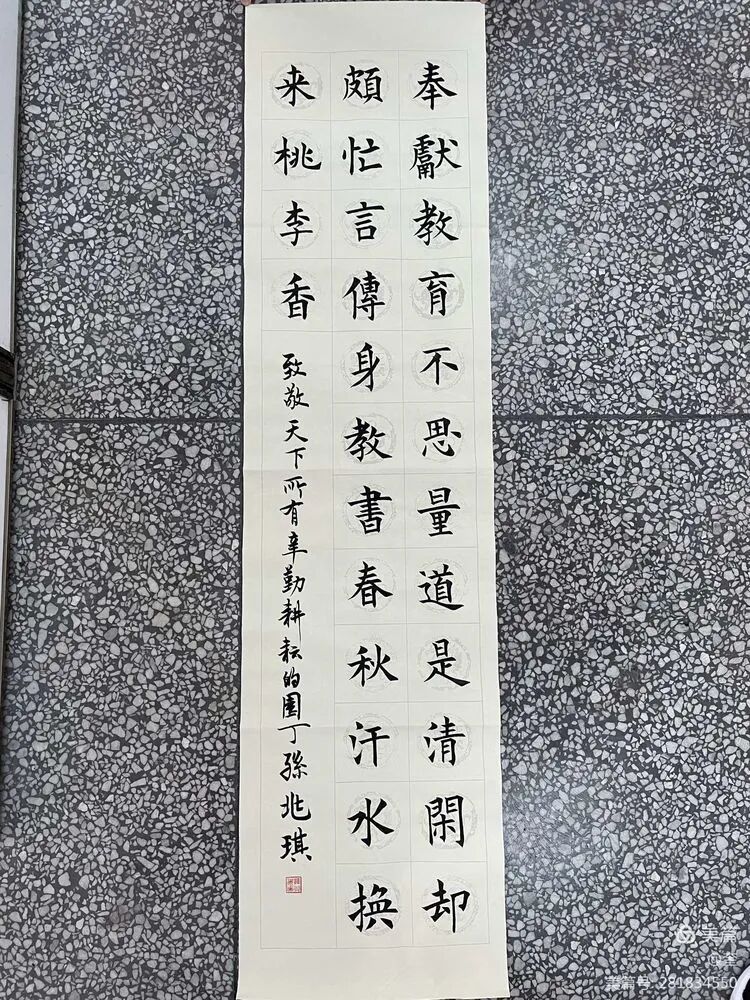 奉獻教育不思量道是清閑却
頗忙言傳身教書春秋汗水换
来桃李香
致敬天下所有辛勤耕耘的園丁孫兆琪
美篇
美篇号 281834550